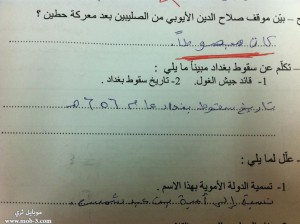 - بيّن موقف صلاح الدين الأيوبي من الصليبين بعد معركة حطين ؟
كان مبسوط
- تكلّم عن سقوط بغداد مبيناً ما يلي :
1. قائد جيش الغول. 2- تاريخ سقوط بغداد.
تاريخ سقوط بغداد عام ٦٥٦ هـ
- علّل لما يلي :
1. تسمية الدولة الأموية بهذا الاسم .
نسبة إلى أمية بن عبد شمس
موبايل ثري
www.mob-3.com